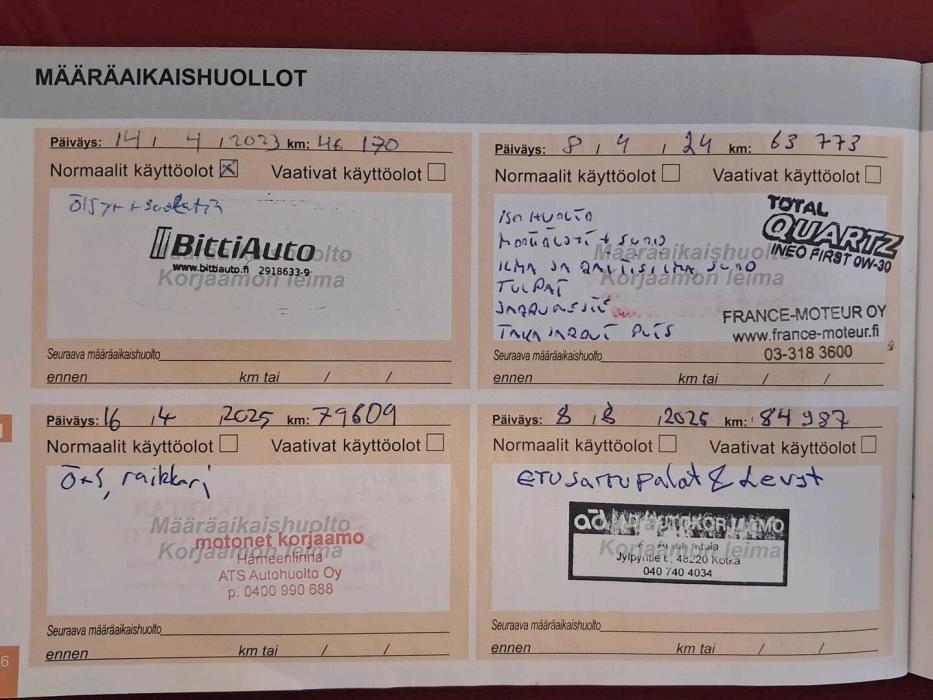 MÄÄRÄAIKAISHUOLLOT
Päiväys: 14 / 4 / 2023 km: 46 170
Normaalit käyttöolot ☒ Vaativat käyttöolot ☐
BittiAuto
www.bittiauto.fi 2918633-9
Määräaikaishuolto
Korjaamon leima
Seuraava määräaikaishuolto
ennen km tai / /
Päiväys: 8 / 4 / 24 km: 63 773
Normaalit käyttöolot ☐ Vaativat käyttöolot ☐
ISO HUOLTO
ILMA JA RAITISILMA SUOD
TULPAT
TAKA JARRUT PUTS
TOTAL
QUARTZ
INEO FIRST 0W-30
Määräaikaishuolto
Korjaamon leima
FRANCE-MOTEUR OY
www.france-moteur.fi
03-318 3600
Seuraava määräaikaishuolto
ennen km tai / /
Päiväys: 16 / 4 / 2025 km: 79609
Normaalit käyttöolot ☐ Vaativat käyttöolot ☐
Ö+S, raikkari
Määräaikaishuolto
motonet korjaamo
Korjaamon leima
Hämeenlinna
ATS Autohuolto Oy
p. 0400 990 688
Seuraava määräaikaishuolto
ennen km tai / /
Päiväys: 8 / 8 / 2025 km: 84 987
Normaalit käyttöolot ☐ Vaativat käyttöolot ☐
ETUJARRUPALAT & Levyt
ad AUTOKORJAAMO
Määräaikaishuolto
Korjaamon leima
48220 Kotka
040 740 4034
Seuraava määräaikaishuolto
ennen km tai / /
6